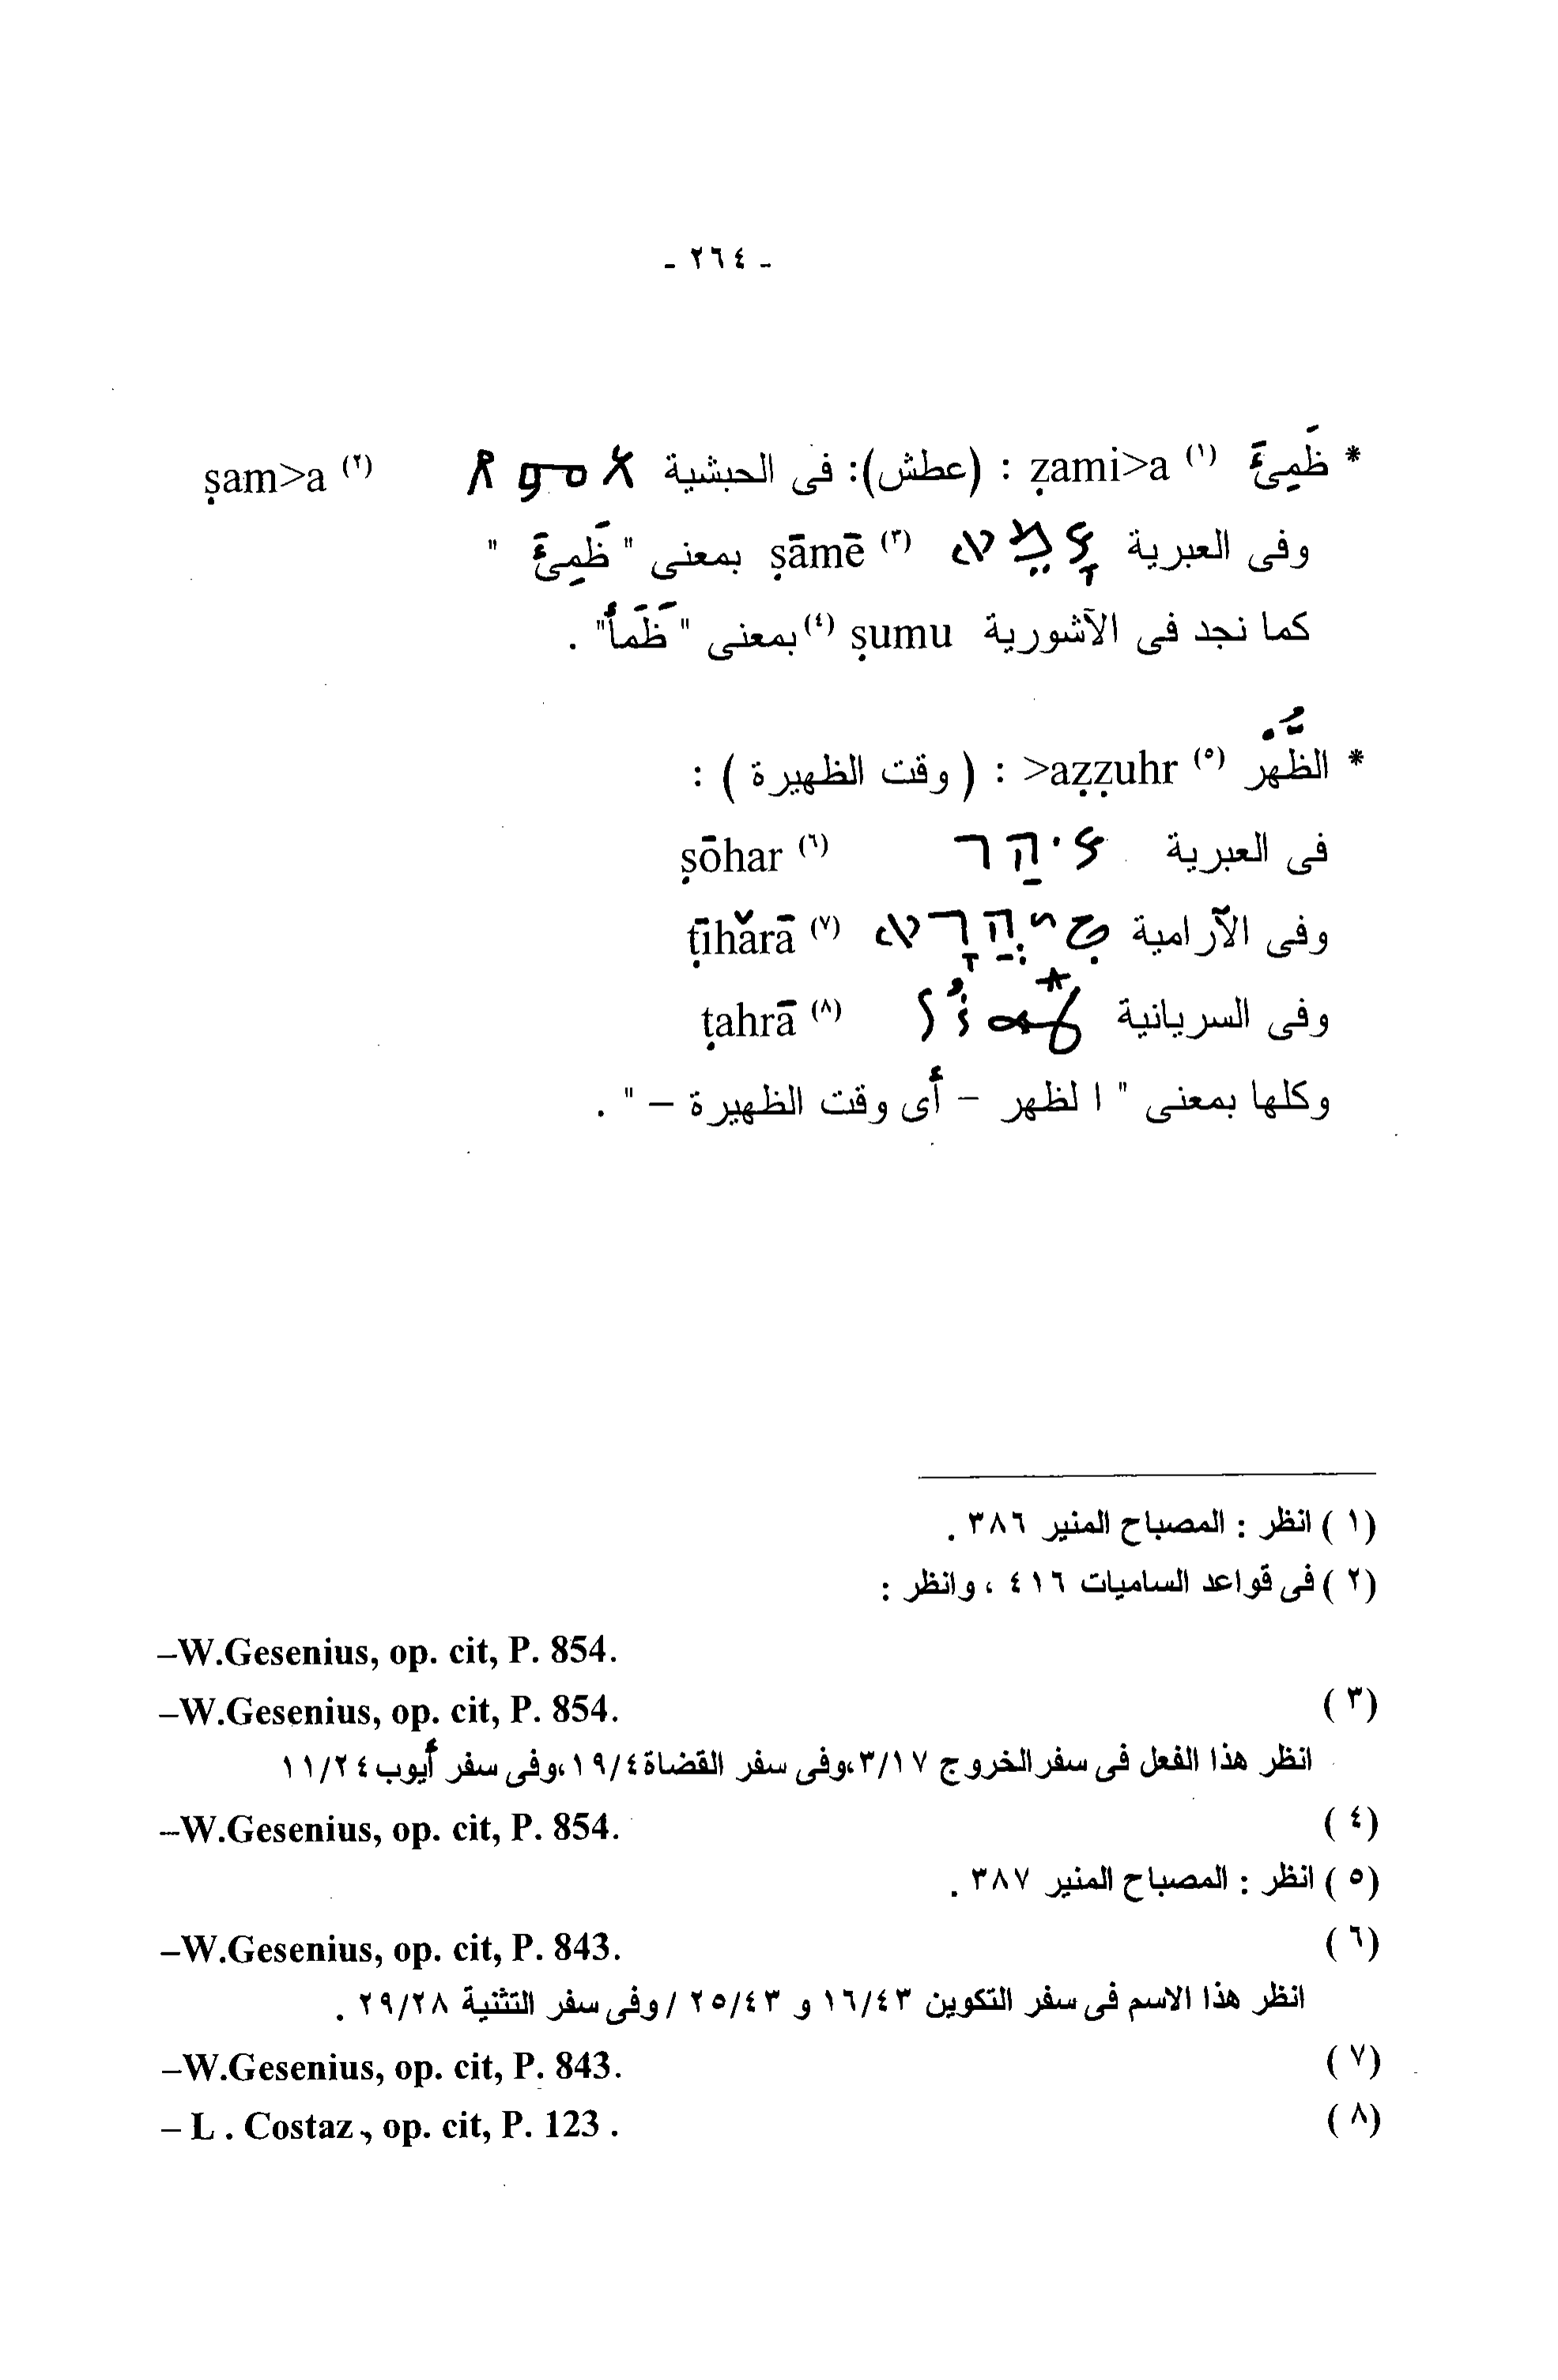 - ٢٦٤ -
* ظَمِئَ (١) ẓami>a : (عطش): فى الحبشية ጸምአ ṣam>a (٢)
وفى العبرية צָמֵא ṣāmē (٣) بمعنى "ظَمِئَ "
كما نجد فى الآشورية ṣumu (٤) بمعنى "ظَمَأَ" .
* الظُّهْر (٥) >aẓẓuhr : ( وقت الظهيرة ) :
فى العبرية צֹהַר ṣōhar (٦)
وفى الآرامية טִיהֲרָא ṭīhărā (٧)
وفى السريانية ܛܗܪܐ ṭahrā (٨)
وكلها بمعنى " الظهر – أى وقت الظهيرة – " .
(١) انظر : المصباح المنير ٣٨٦ .
(٢) فى قواعد الساميات ٤١٦ ، وانظر :
–W.Gesenius, op. cit, P. 854.
(٣) –W.Gesenius, op. cit, P. 854.
انظر هذا الفعل فى سفر الخروج ٣/١٧،وفى سفر القضاة ١٩/٤،وفى سفر أيوب ١١/٢٤
(٤) –W.Gesenius, op. cit, P. 854.
(٥) انظر : المصباح المنير ٣٨٧ .
(٦) –W.Gesenius, op. cit, P. 843.
انظر هذا الاسم فى سفر التكوين ١٦/٤٣ و ٢٥/٤٣ /وفى سفر التثنية ٢٩/٢٨ .
(٧) –W.Gesenius, op. cit, P. 843.
(٨) – L . Costaz , op. cit, P. 123 .